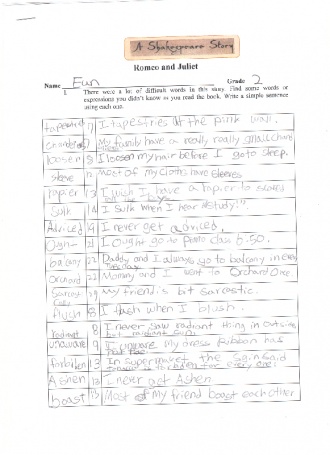 A Shakespeare Story
Romeo and Juliet
Name Eun Grade 2
1. There were a lot of difficult words in this story. Find some words or
expressions you didn't know or you read the book. Write a simple sentence
using each one.
7 I tapestries at the pink wall.
My family have a really really small
loosen 8 I loosen my hair before I go to sleep.
sleeve 12 Most of my cloths have sleeves
rapier 13 I wish I have a rapier to
Sulk I sulk when I hear "study!"
Adviced 19 I never get adviced.
21 I ought go to class 6:50.
balcony 22 Daddy and I always go to balcony in every
Orchard 22 Mommy and I went to Orchard once
29 My friend's bit sarcastic.
8 I flush when I blush.
radiant 8 I never saw radiant thing in outside
unaware 9 I unaware my dress Ribbon has
forbidden 13 In supermarket the sign said
for every one!
Ashen 13 I never got Ashen
boast 15 Most of my friend boast each other